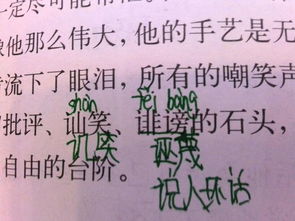 一定尽可能
像他那么伟大，他的手艺是无
流下了眼泪，所有的嘲笑声
shàn fěi bàng
批评、讪笑、诽谤的石头，
讥笑 诬蔑
自由的台阶。
说人坏话